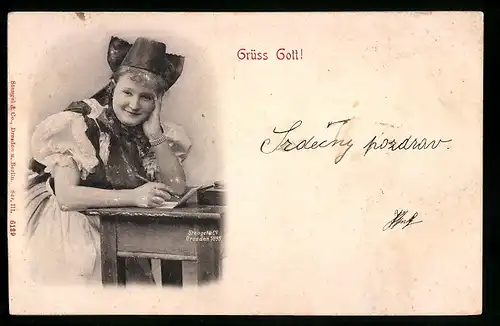 Grüss Gott!
Srdečný pozdrav.
Stengel & Co., Dresden u. Berlin. Ser. III. 6129
Stengel & Co
Dresden 1898